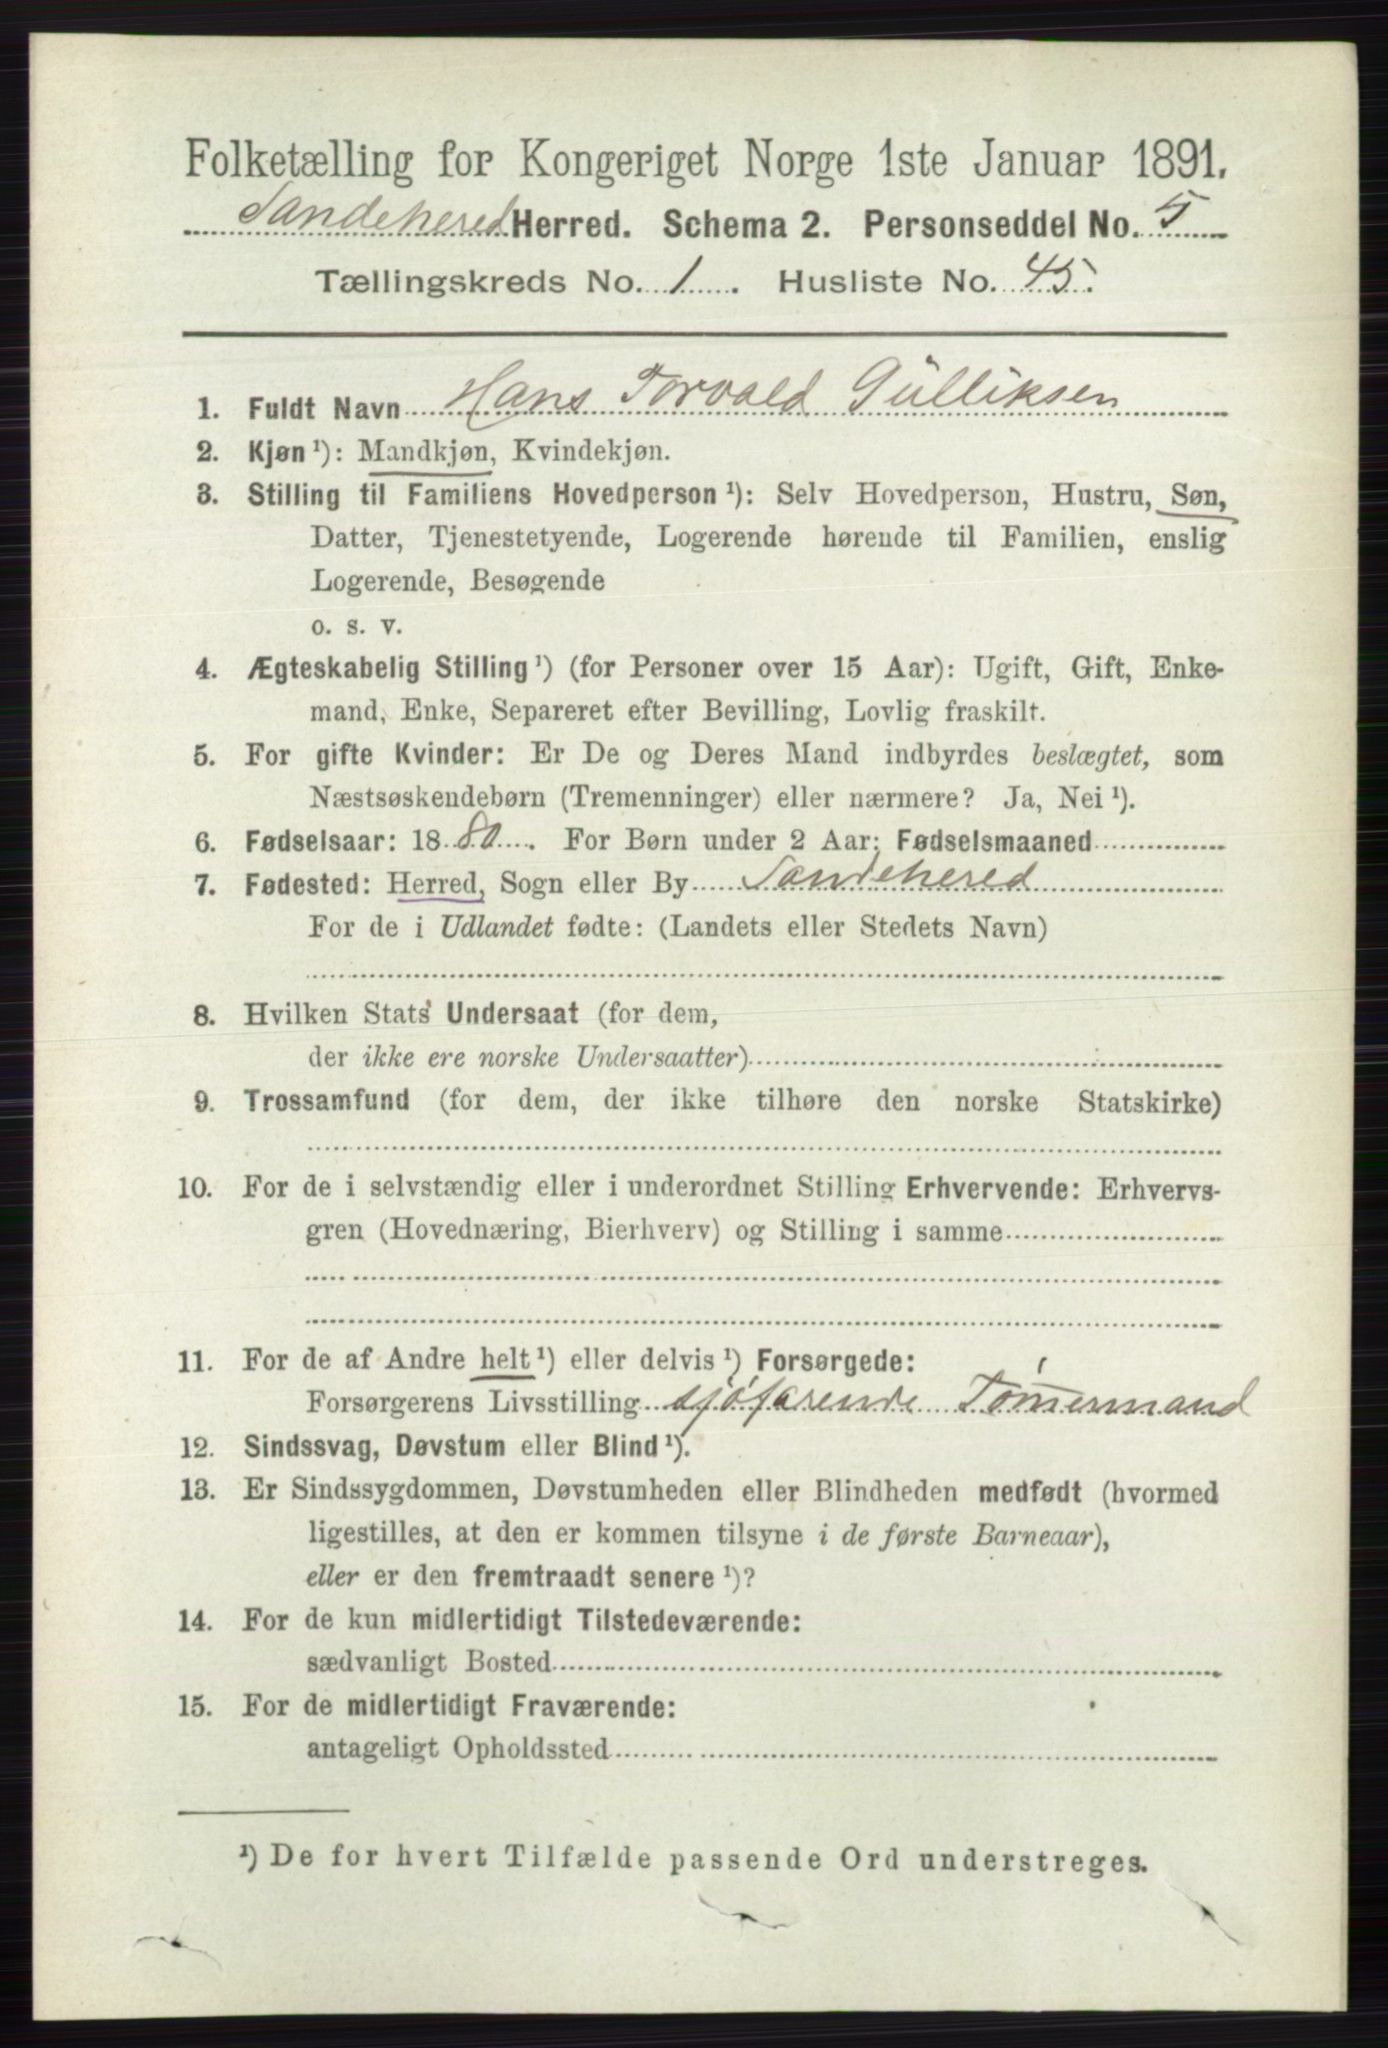 Folketælling for Kongeriget Norge 1ste Januar 1891.
Sandehered Herred. Schema 2. Personseddel No. 5
Tællingskreds No. 1. Husliste No. 45.
1. Fuldt Navn Hans Torvald Gülliksen
2. Kjøn ¹): Mandkjøn, Kvindekjøn.
3. Stilling til Familiens Hovedperson ¹): Selv Hovedperson, Hustru, Søn,
Datter, Tjenestetyende, Logerende hørende til Familien, enslig
Logerende, Besøgende
o. s. v.
4. Ægteskabelig Stilling ¹) (for Personer over 15 Aar): Ugift, Gift, Enke-
mand, Enke, Separeret efter Bevilling, Lovlig fraskilt.
5. For gifte Kvinder: Er De og Deres Mand indbyrdes beslægtet, som
Næstsøskendebørn (Tremenninger) eller nærmere? Ja, Nei ¹).
6. Fødselsaar: 1880. For Børn under 2 Aar: Fødselsmaaned
7. Fødested: Herred, Sogn eller By Sandehered
For de i Udlandet fødte: (Landets eller Stedets Navn)
8. Hvilken Stats Undersaat (for dem,
der ikke ere norske Undersaatter)
9. Trossamfund (for dem, der ikke tilhøre den norske Statskirke)
10. For de i selvstændig eller i underordnet Stilling Erhvervende: Erhvervs-
gren (Hovednæring, Bierhverv) og Stilling i samme
11. For de af Andre helt ¹) eller delvis ¹) Forsørgede:
Forsørgerens Livsstilling sjøfarende Tömermand
12. Sindssvag, Døvstum eller Blind ¹).
13. Er Sindssygdommen, Døvstumheden eller Blindheden medfødt (hvormed
ligestilles, at den er kommen tilsyne i de første Barneaar),
eller er den fremtraadt senere ¹)?
14. For de kun midlertidigt Tilstedeværende:
sædvanligt Bosted
15. For de midlertidigt Fraværende:
antageligt Opholdssted
¹) De for hvert Tilfælde passende Ord understreges.